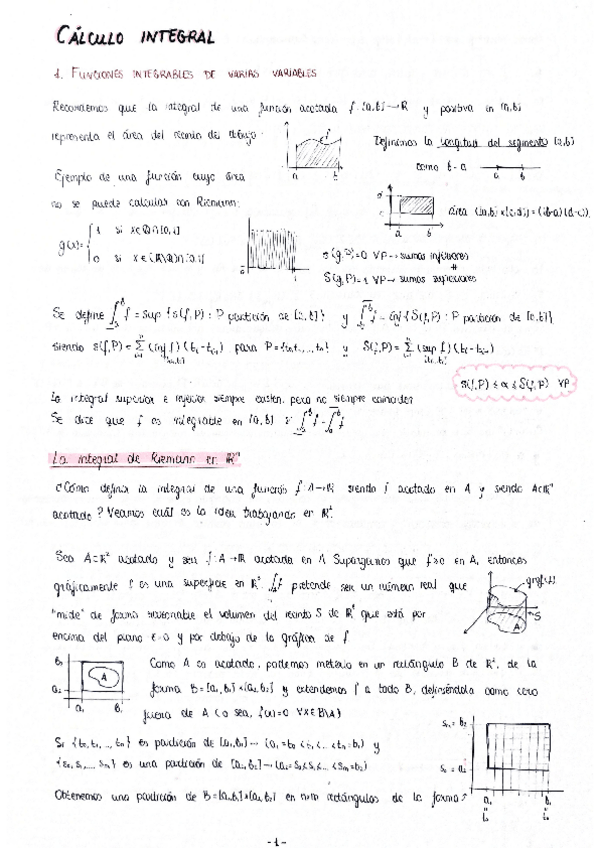 CÁLCULO INTEGRAL
1. FUNCIONES INTEGRABLES DE VARIAS VARIABLES
Recordemos que la integral de una función acotada f: [a,b] → ℝ y positiva en [a,b]
representa el área del recinto de dibujo:
f
a b
Definimos la longitud del segmento [a,b]
como b-a
a b
Ejemplo de una función cuyo área
no se puede calcular con Riemann:
a b
área ([a,b]×[c,d]) = (b-a)(d-c)
g(x) = { 1 si x∈ℚ∩[0,1]
0 si x∈(ℝ\ℚ)∩[0,1]
s(g,P)=0 ∀P → sumas inferiores
≠
S(g,P)=1 ∀P → sumas superiores
Se define ∫ f = sup {s(f,P) : P partición de [a,b]} y ∫ f = inf {S(f,P) : P partición de [a,b]}
siendo s(f,P) = Σ (inf f)(ti - ti-1) para P={t0,t1,...,tn} y S(f,P) = Σ (sup f)(ti - ti-1)
s(f,P) ≤ α ≤ S(f,P) ∀P
La integral superior e inferior siempre existen, pero no siempre coinciden
Se dice que f es integrable en [a,b] si ∫ f = ∫ f
La integral de Riemann en ℝⁿ
¿Cómo definir la integral de una función f: A→ℝ siendo f acotada en A y siendo A⊂ℝⁿ
acotado? Veamos cuál es la idea trabajando en ℝ².
Sea A⊂ℝ² acotado y sea f: A→ℝ acotada en A. Supongamos que f≥0 en A, entonces
gráficamente f es una superficie en ℝ³. ∫ f pretende ser un número real que
"mide" de forma razonable el volumen del recinto S de ℝ³ que está por
encima del plano z=0 y por debajo de la gráfica de f
graf(f)
S
A
b2
a2
A
a1 b1
Como A es acotado, podemos meterlo en un rectángulo B de ℝ², de la
forma B=[a1,b1]×[a2,b2] y extendemos f a todo B, definiéndola como cero
fuera de A (o sea, f(x)=0 ∀x∈B\A)
Si {t0,t1,...,tn} es partición de [a1,b1] → (a1=t0<t1<...<tn=b1) y
{s0,s1,...,sm} es una partición de [a2,b2] → (a2=s0<s1<...<sm=b2)
Obtenemos una partición de B=[a1,b1]×[a2,b2] en n·m rectángulos de la forma:
sm = b2
s0 = a2
a1 b1
t0 tn
-1-